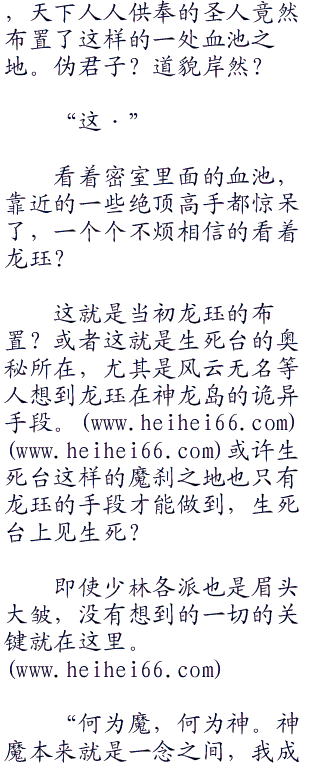 ，天下人人供奉的圣人竟然
布置了这样的一处血池之
地。伪君子？道貌岸然？
“这·”
看着密室里面的血池，
靠近的一些绝顶高手都惊呆
了，一个个不烦相信的看着
龙珏？
这就是当初龙珏的布
置？或者这就是生死台的奥
秘所在，尤其是风云无名等
人想到龙珏在神龙岛的诡异
手段。(www.heihei66.com)
(www.heihei66.com)或许生
死台这样的魔刹之地也只有
龙珏的手段才能做到，生死
台上见生死？
即使少林各派也是眉头
大皱，没有想到的一切的关
键就在这里。
(www.heihei66.com)
“何为魔，何为神。神
魔本来就是一念之间，我成